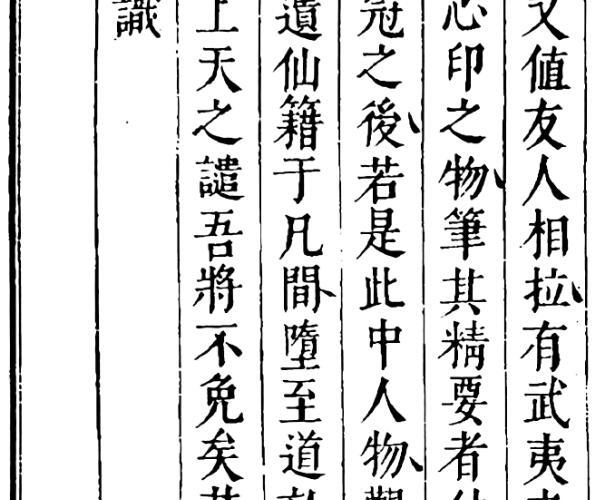 又值友人相拉有武夷
心印之物筆其精要者
冠之後若是此中人物
遺仙籍于凡間墮至道
上天之譴吾將不免矣
識